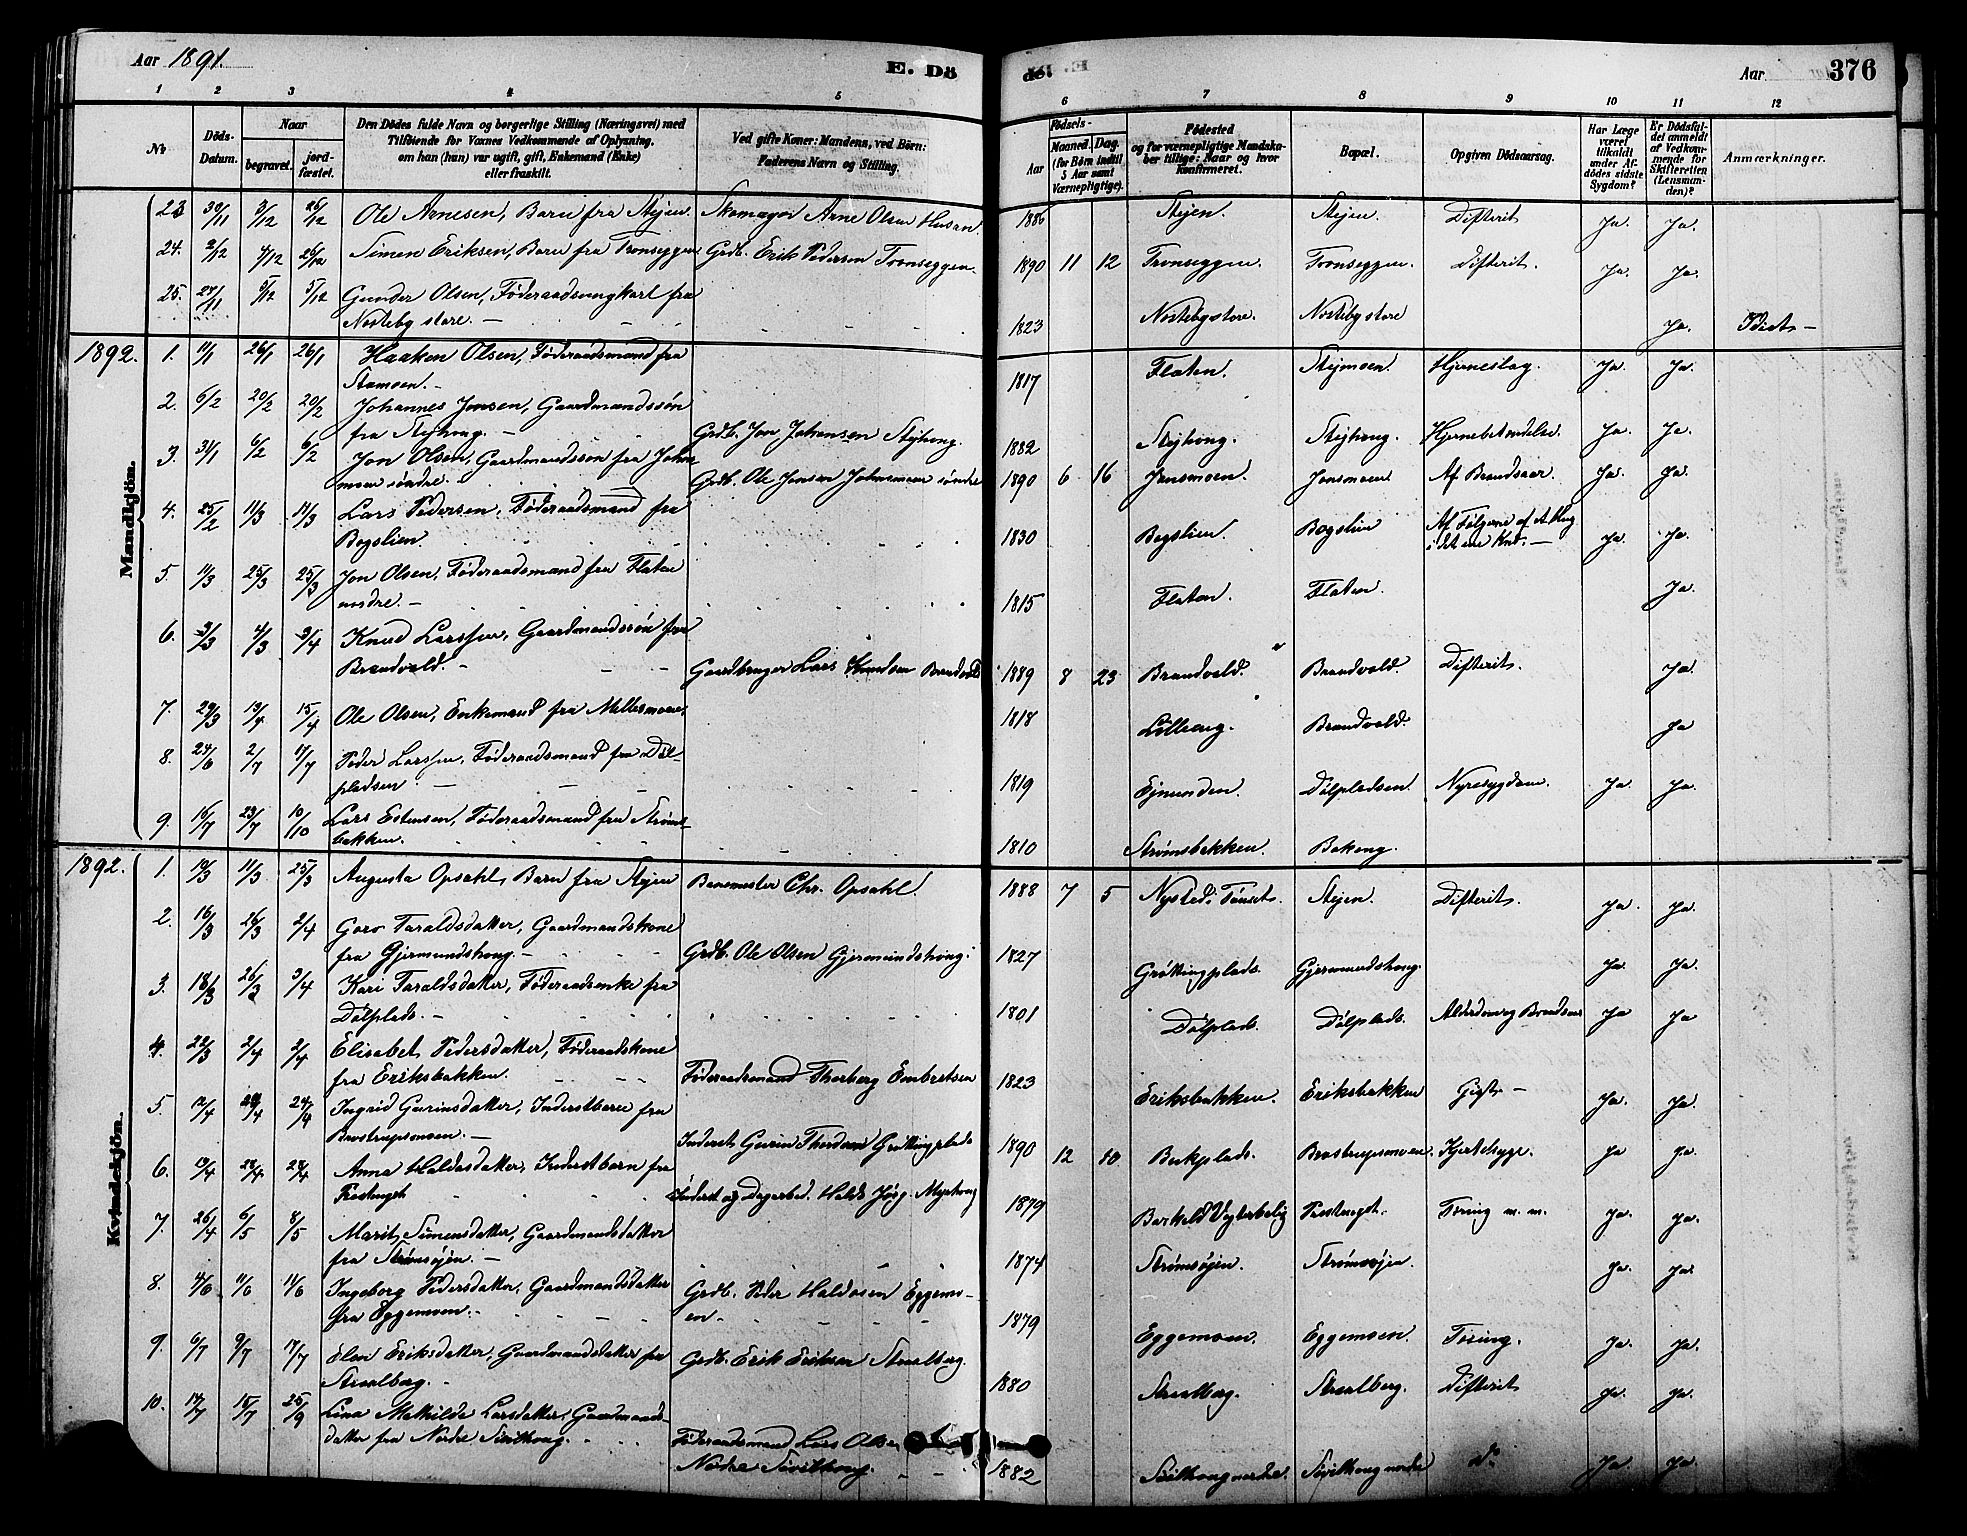 Aar 1891.
E. Dö
de.
Aar
376
1 2 3 4 5 6 7 8 9 10 11 12
No
Döds-Datum.
Naar
begravet.
jordfæstet.
Den Dödes fulde Navn og borgerlige Stilling (Næringsvei) med
Tilföiende for Voxnes Vedkommende af Oplysning,
om han (hun) var ugift, gift, Enkemand (Enke)
eller fraskilt.
Ved gifte Koner: Mandens, ved Börn:
Faderens Navn og Stilling.
Födsels-
Aar
Maaned. Dag.
(for Börn indtil
5 Aar samt
Værnepligtige).
Födested
og for værnepligtige Mandskaber tillige: Naar og hvor
konfirmeret.
Bopæl.
Opgiven Dödsaarsag.
Har Læge
været
tilkaldt
under Afdödes sidste
Sygdom?
Er Dödsfaldet anmeldt
af Vedkommende for
Skifteretten
(Lensmanden)?
Anmærkninger.
23 30/11 3/12 26/12 Ole Arnesen, Barn fra Stejen. Skomager Arne Olsen Husan. 1886 Stejen. Stejen. Difterit Ja. Ja.
24. 2/12 4/12 26/12 Simen Eriksen, Barn fra Tronseggen Grdb. Erik Pedersen Tronseggen. 1890 11 12 Tronseggen. Tronseggen. Difterit. Ja. Ja.
25. 5/12 5/12 Gunder Olsen, Föderaadsungkarl fra
Nosteby store. 1823 Nosteby store. Nosteby store Ja. Idiot
Mandkjön.
1892. 1. 11/1 26/1 26/1 Haaken Olsen, Föderaadsmand fra
Stamoen. 1817 Flaten. Stejmoen. Hjerneslag Ja. Ja.
2. 6/2 20/2 20/2 Johannes Jonsen, Gaardmandssön
fra Stejhoug. Grdb. Jon Johansen Stejhoug. 1882 Stejhoug. Stejhoug. Hjernebetændelse. Ja. Ja.
3. 31/1 6/2 6/2 Jon Olsen, Gaardmandsson fra
söndre. Grdb. Ole Jonsen söndre 1890 6 16 Jonsmoen. Jonsmoen Af Brandsaar Ja. Ja.
4. 25/2 11/3 11/3 Lars Pedersen, Föderaadsmand fra
Bogslien. 1830 Bogslien. Bogslien Af Fölgerne af et Hug
i det ene Knæ. Ja. Ja.
5. 11/3 25/3 25/3 Jon Olsen, Föderaadsmand fra Flaten
nordre. 1815 Flaten. Flaten. Ja.
6. 3/3 4/3 3/4 Knud Larssen, Gaardmandssön fra
Brandvold. Gaardbruger Lars Knudsen Brandvold 1889 8 23 Brandvold. Brandvold. Difterit. Ja.
7. 29/3 13/4 15/4 Ole Olsen, Enkemand fra Mellesmoen. 1818 Lilleeng. Brandvold. Ja
8. 24/6 2/7 17/7 Peder Larssen, Föderaadsmand fra Döl-
pladsen 1819 Ejnunden. Dölpladsen Nyresygdom. Ja. Ja.
9. 16/7 23/7 10/10 Lars Estensen, Föderaadsmand fra Ströms-
bakken. 1810 Strömsbakken. Bakeng.
Kvindekjön.
1892. 1. 10/3 11/3 25/3 Augusta Opsahl, Barn fra Stejen Banemester Chr. Opsahl. 1888 7 5 Nysted, Tönset. Stejen. Difterit. Ja. Ja.
2. 16/3 26/3 2/4 Goro Taraldsdatter, Gaardmandskone
fra Gjermundshoug. Grdb. Ole Olsen Gjermundshoug. 1827 Gröttingplads. Gjermundshoug. Ja. Ja.
3. 18/3 26/3 3/4 Kari Taraldsdatter, Föderaadsenke fra
Dölplads. 1801 Dölplads. Dölplads. Alderdom og Brandsaar Ja Ja
4. 22/3 2/4 2/4 Elisabet Pedersdatter, Föderaadskone
fra Eriksbakken. Föderaadsmand Thorberg Embretsen 1823 Eriksbakken. Eriksbakken Gigt Ja. Ja.
5. 12/4 24/4 24/4 Ingrid Gurinsdatter, Inderstbarn fra
Brostrupsmoen. Inderst Gurin Thordsen Gröttingplads 1890 12 10 Bukplads. Brostrupsmoen. Kjertelsyge. Ja Ja.
6. 24/4 24/4 Anna Haldosdatter, Inderstbarn fra
Prestegst Inderst og Dagarbed. Haldo Myrhoug 1879 Prestegst. Tæring m. m. Ja. Ja.
7. 26/4 6/5 8/5 Marit Simensdatter, Gaardmandsdatter
fra Strömsöjen. 1874 Strömsöjen. Strömsöjen. Ja. Ja.
8. 4/6 11/6 11/6 Ingeborg Pedersdatter, Gaardmandsdatter
fra Eggemoen. Grdb. Peder Haldosen Eggemo-
en. 1879 Eggemoen. Eggemoen. Tæring. Ja. Ja.
9. 6/7 9/7 17/7 Elen Eriksdatter, Gaardmandsdatter fra
Straalberg. Grdb. Erik Eriksen Straalberg. 1880 Straalberg. Straalberg. Difterit Ja. Ja.
10. 15/7 25/9 Lina Mathilde Larsdatter, Gaardmands-
datter fra Nordre Sivilhoug. Föderaadsmand Lars Olsen
Nordre Sivilhoug. 1882 Sivilhoug nordre. Sivilhoug nordre do Ja. Ja.